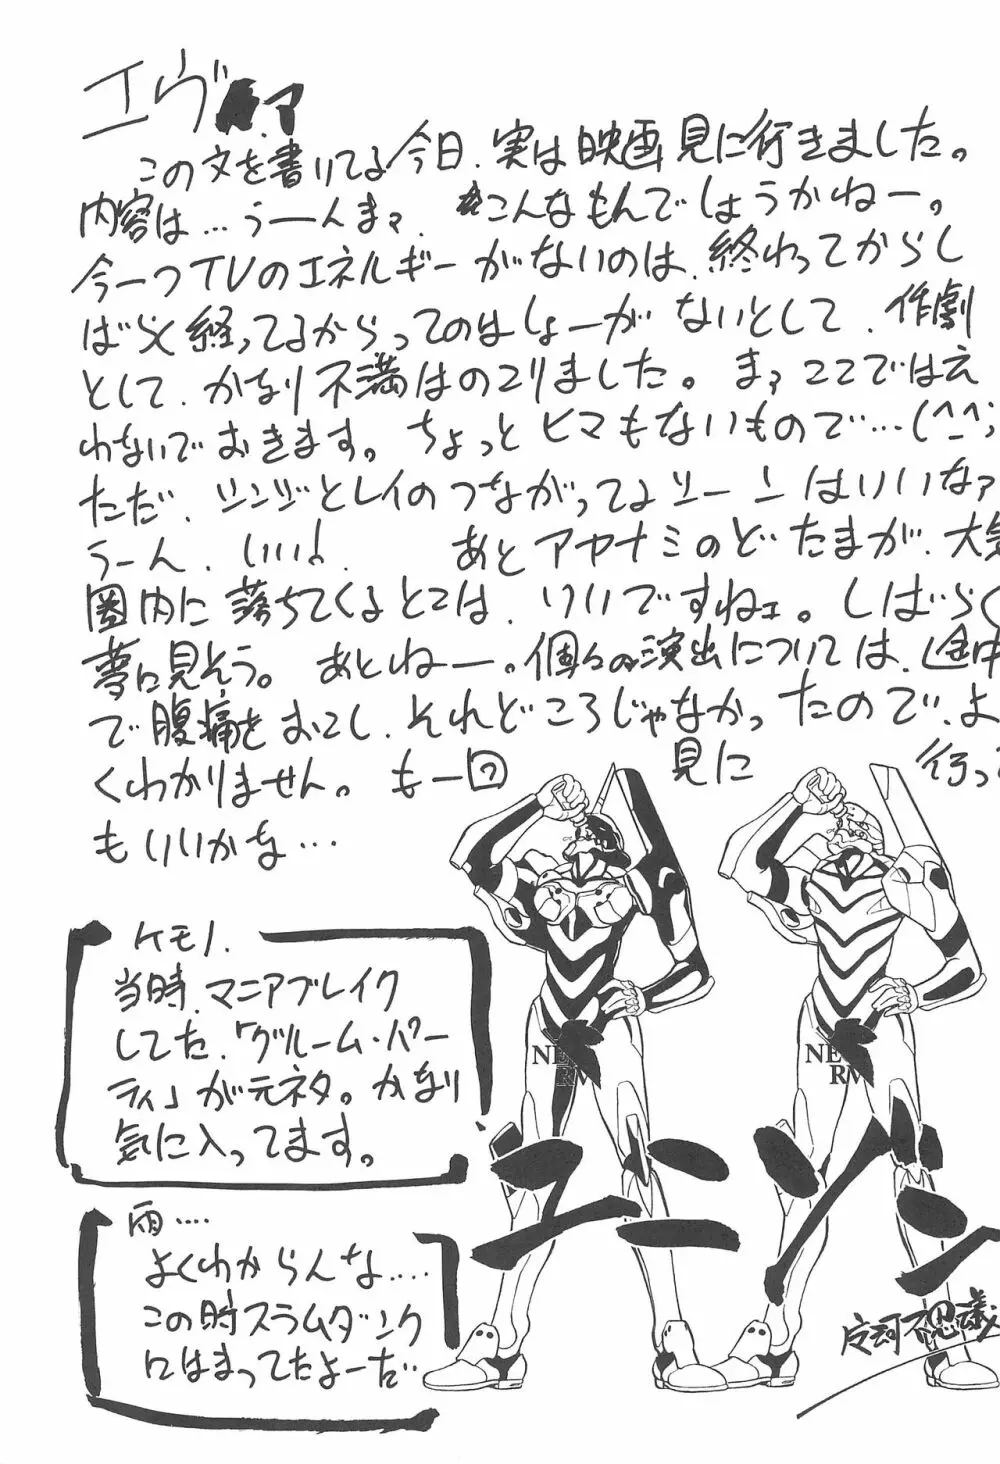 エヴァ
この文を書いてる今日、実は映画見に行きました。
内容は…うーんまァ、こんなもんでしょうかねー。
今一つTVのエネルギーがないのは、終わってからし
ばらく経ってるからってのはしょーがないとして、作劇
として、かなり不満はのこりました。まァここでは云
わないでおきます。ちょっとヒマもないもので…(^^;
ただ、シンジとレイのつながってるシーンはいいなァ
うーん、いい! あとアヤナミのどたまが、大気
圏内に落ちてくるとこは、いいですねェ。しばらく
夢に見そう。あとねー。個々の演出については、途中
で腹痛をおこし、それどころじゃなかったので、よ
くわかりません。も一回見に行って
もいいかな…
ケモノ.
当時、マニアブレイク
してた、「グルーム・パー
ティ」が元ネタ。かなり
気に入ってます。
雨….
よくわからんな….
この時スラムダンク
にはまってたよーだ…
NE
RV
NE
RV
不思議